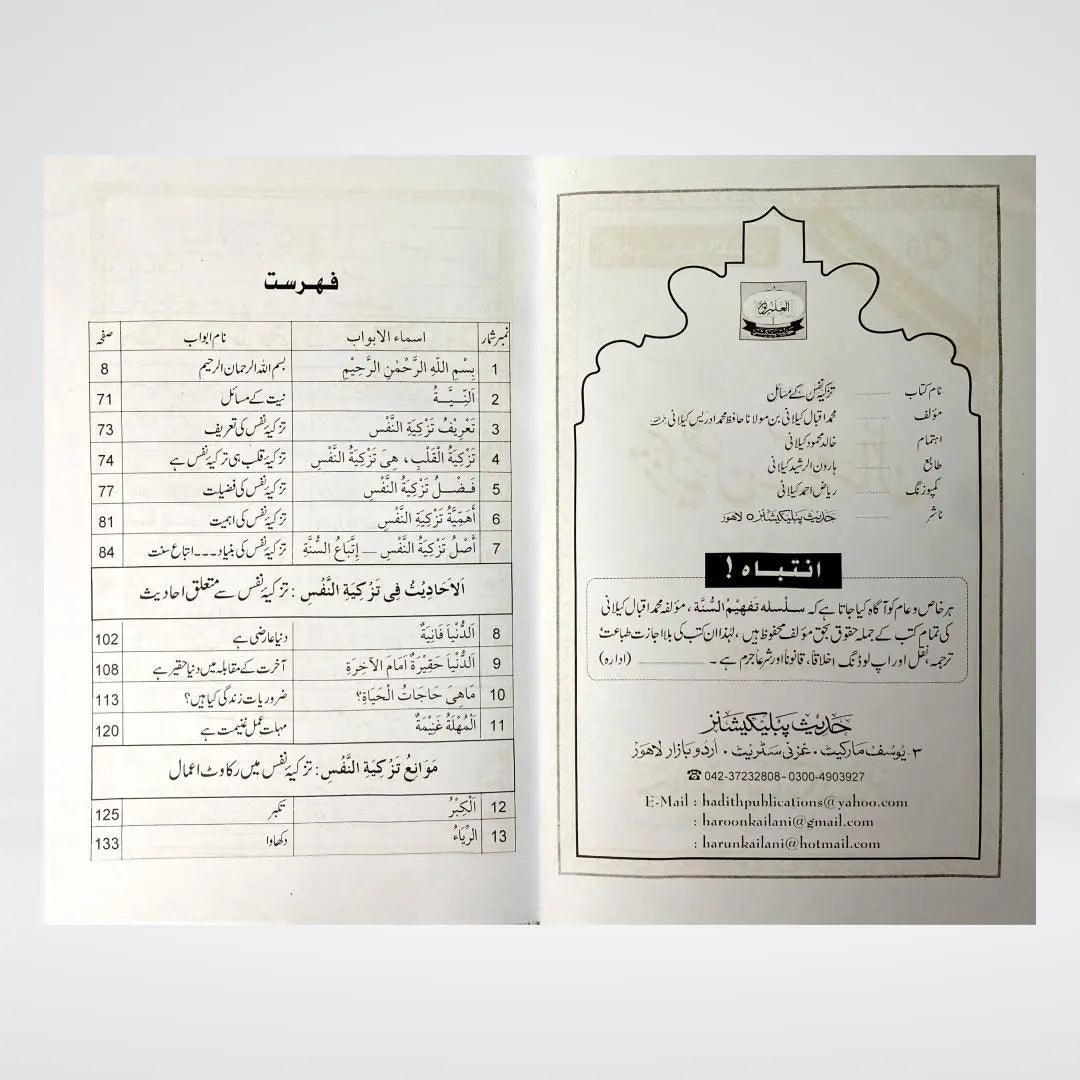 نام کتاب ............ تزکیۂ نفس کے مسائل
مؤلف ............ محمد اقبال کیلانی بن مولانا حافظ محمد ادریس کیلانی
اہتمام ............ خالد محمود کیلانی
طابع ............ ہارون الرشید کیلانی
کمپوزنگ ............ ریاض احمد کیلانی
ناشر ............ حدیث پبلیکیشنز ٥ لاہور
انتباہ !
ہر خاص و عام کو آگاہ کیا جاتا ہے کہ سلسلہ تفہیم السُّنَّة ، مؤلفہ محمد اقبال کیلانی
کی تمام کتب کے جملہ حقوق بحق مؤلف محفوظ ہیں ، لہٰذا ان کتب کی بلا اجازت طباعت
ترجمہ، نقل اور اپ لوڈنگ اخلاقاً، قانوناً اور شرعاً جرم ہے ۔ ________ (ادارہ)
حدیث پبلیکیشنز
٣- یوسف مارکیٹ • غزنی سٹریٹ • اُردو بازار لاهور
☎ 042-37232808 - 0300-4903927
E-Mail : hadithpublications@yahoo.com
: haroonkailani@gmail.com
: harunkailani@hotmail.com
فہرست
نمبر شمار اسماء الابواب نام ابواب صفحہ
1 بِسْمِ اللّٰهِ الرَّحْمٰنِ الرَّحِيْمِ بسم اللہ الرحمان الرحیم 8
2 اَلنِّـيَّــةُ نیت کے مسائل 71
3 تَعْرِيْفُ تَزْكِيَةِ النَّفْسِ تزکیۂ نفس کی تعریف 73
4 تَزْكِيَةُ الْقَلْبِ ، هِيَ تَزْكِيَةُ النَّفْسِ تزکیۂ قلب ہی تزکیۂ نفس ہے 74
5 فَضْــلُ تَزْكِيَةُ النَّفْسِ تزکیۂ نفس کی فضیلت 77
6 أَهَمِّيَّةُ تَزْكِيَةِ النَّفْسِ تزکیۂ نفس کی اہمیت 81
7 أَصْلُ تَزْكِيَةُ النَّفْسِ — إِتَّبَاعُ السُّنَّةِ تزکیۂ نفس کی بنیاد ۔۔۔ اتباع سنت 84
اَلاَحَادِيْثُ فِى تَزْكِيَةِ النَّفْسِ : تزکیۂ نفس سے متعلق احادیث
8 اَلدُّنْيَا فَانِيَةٌ دنیا عارضی ہے 102
9 اَلدُّنْيَا حَقِيْرَةٌ اَمَامَ الآخِرَةِ آخرت کے مقابلہ میں دنیا حقیر ہے 108
10 مَاهِيَ حَاجَاتُ الْحَيَاةِ؟ ضروریات زندگی کیا ہیں؟ 113
11 اَلْمُهْلَةُ غَنِيْمَةٌ مہلت عمل غنیمت ہے 120
مَوَانِعُ تَزْكِيَةِ النَّفْسِ : تزکیۂ نفس میں رکاوٹ اعمال
12 اَلْكِبْرُ تکبر 125
13 اَلرِّيَاءُ دکھاوا 133